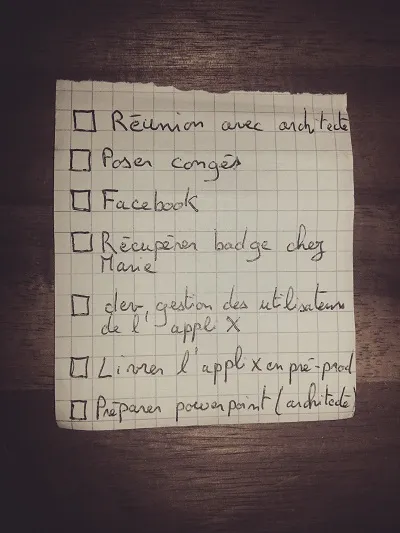 Réunion avec architecte
Poser congés
Facebook
Récupérer badge chez
Marie
dev gestion des utilisateurs
de l'appli X
Livrer l'appli X en pré-prod
Préparer powerpoint (architecte)